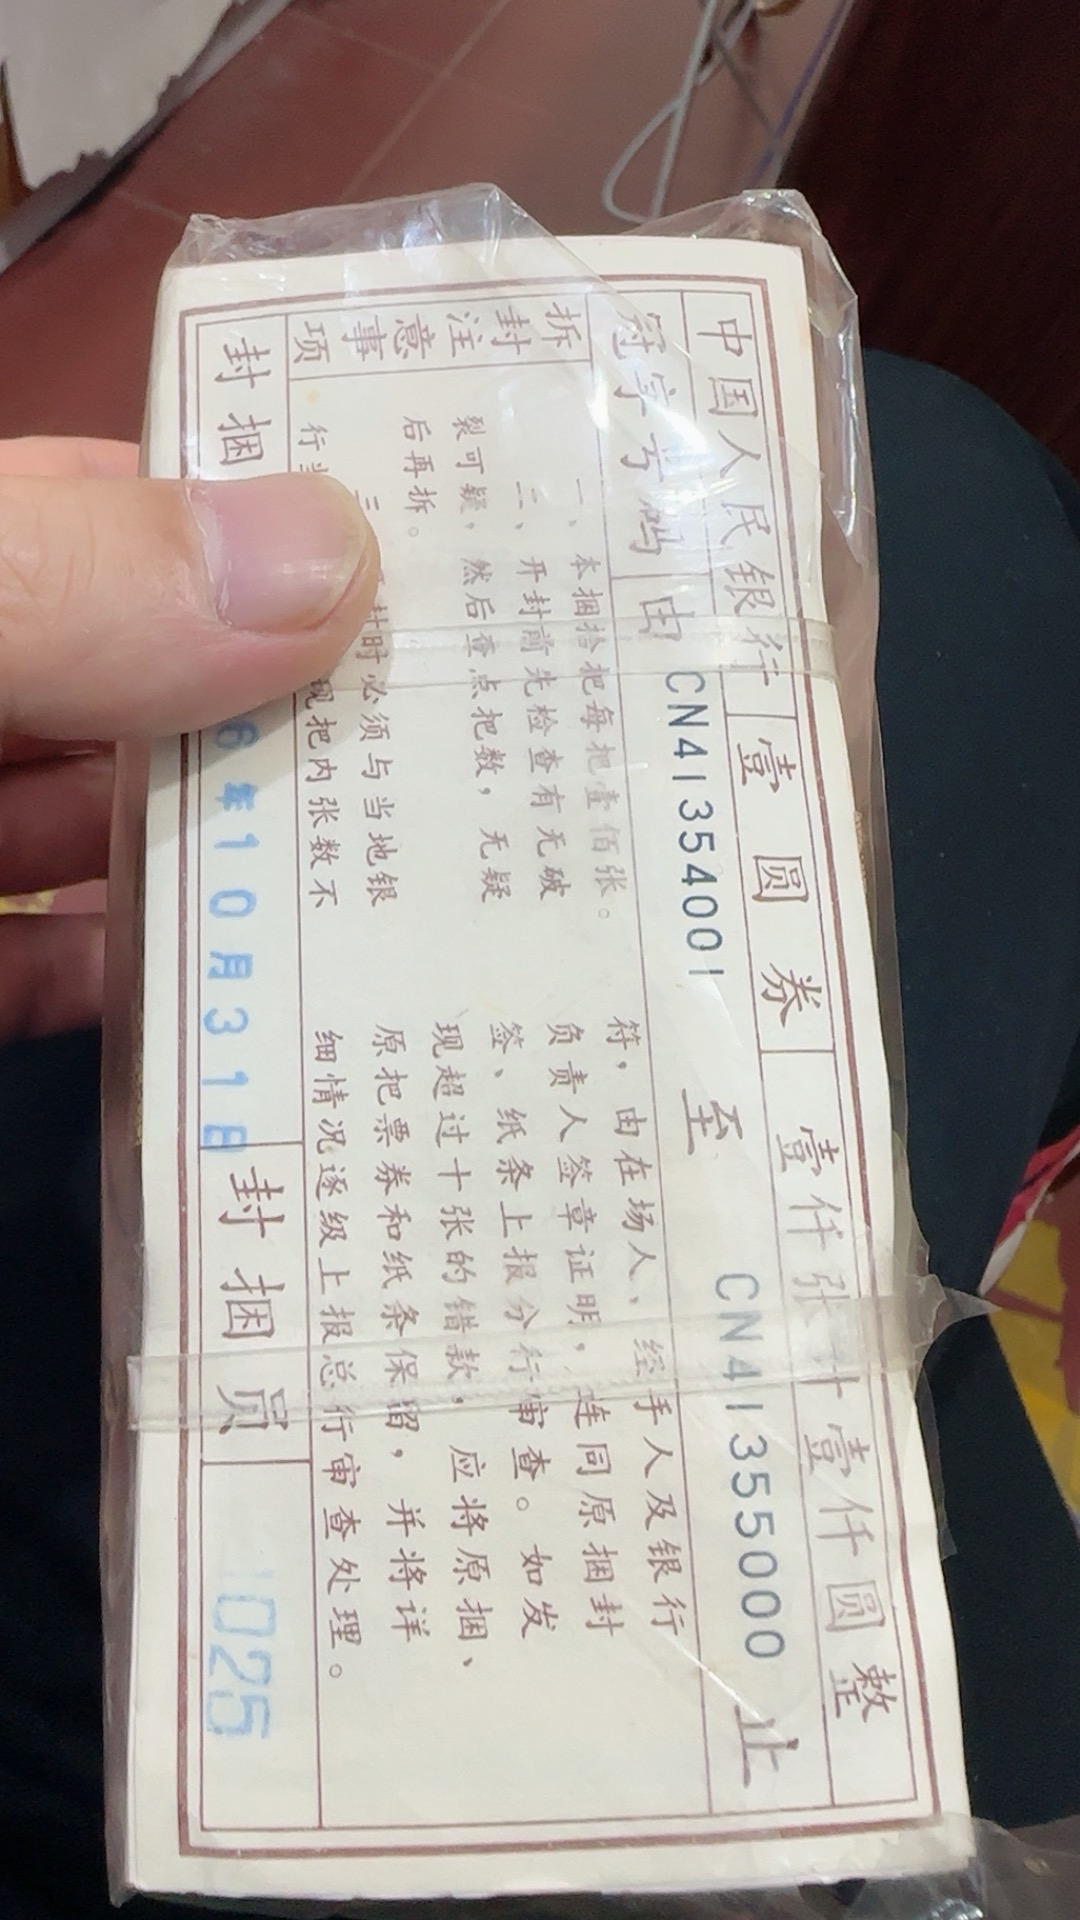 中国人民银行 壹圆券 壹仟张计壹仟圆整
冠字号码 由 CN41354001 至 CN41355000 止
拆封注意事项
一、本捆拾把每把壹佰张。
二、开封前先检查有无破
裂可疑，然后查点把数，无疑
后再拆。
三 封时必须与当地银
行 现把内张数不
符，由在场人、经手人及银行
负责人签章证明，连同原捆封
签、纸条上报分行审查。如发
现超过十张的错款，应将原捆、
原把票券和纸条保留，并将详
细情况逐级上报总行审查处理。
封捆 6年10月31日 封捆员 1025